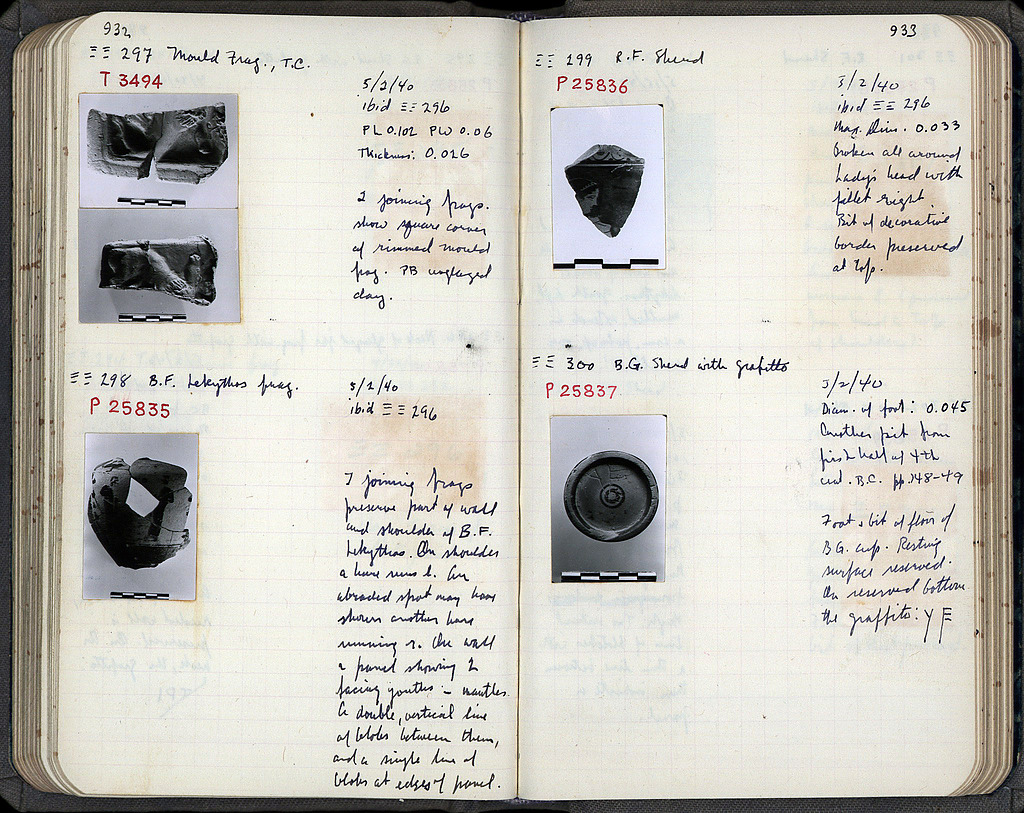 932
ΞΞ 297 Mould Frag., T.C.
T 3494
5/2/40
ibid ΞΞ 296
PL 0.102 PW 0.06
Thickness: 0.026
2 joining frags.
show square corner
of rimmed mould
frag. PB unglazed
clay.
ΞΞ 298 B.F. Lekythos frag.
P 25835
5/2/40
ibid ΞΞ 296
7 joining frags
preserve part of wall
and shoulder of B.F.
Lekythos. On shoulder
a hare runs l. An
abraded spot may have
shown another hare
running r. On wall
a panel showing 2
facing youths in mantles.
A double, vertical line
of blobs between them,
and a single line of
blobs at edges of panel.
933
ΞΞ 299 R.F. Sherd
P 25836
5/2/40
ibid ΞΞ 296
Max. Dim. 0.033
Broken all around
Lady's head with
fillet right.
Bit of decorative
border preserved
at top.
ΞΞ 300 B.G. Sherd with grafitto
P 25837
5/2/40
Diam. of foot: 0.045
Another pit from
first half of 4th
cent. B.C. pp. 148-49
Foot & bit of floor of
B.G. cup. Resting
surface reserved.
On reserved bottom
the graffito: Y E